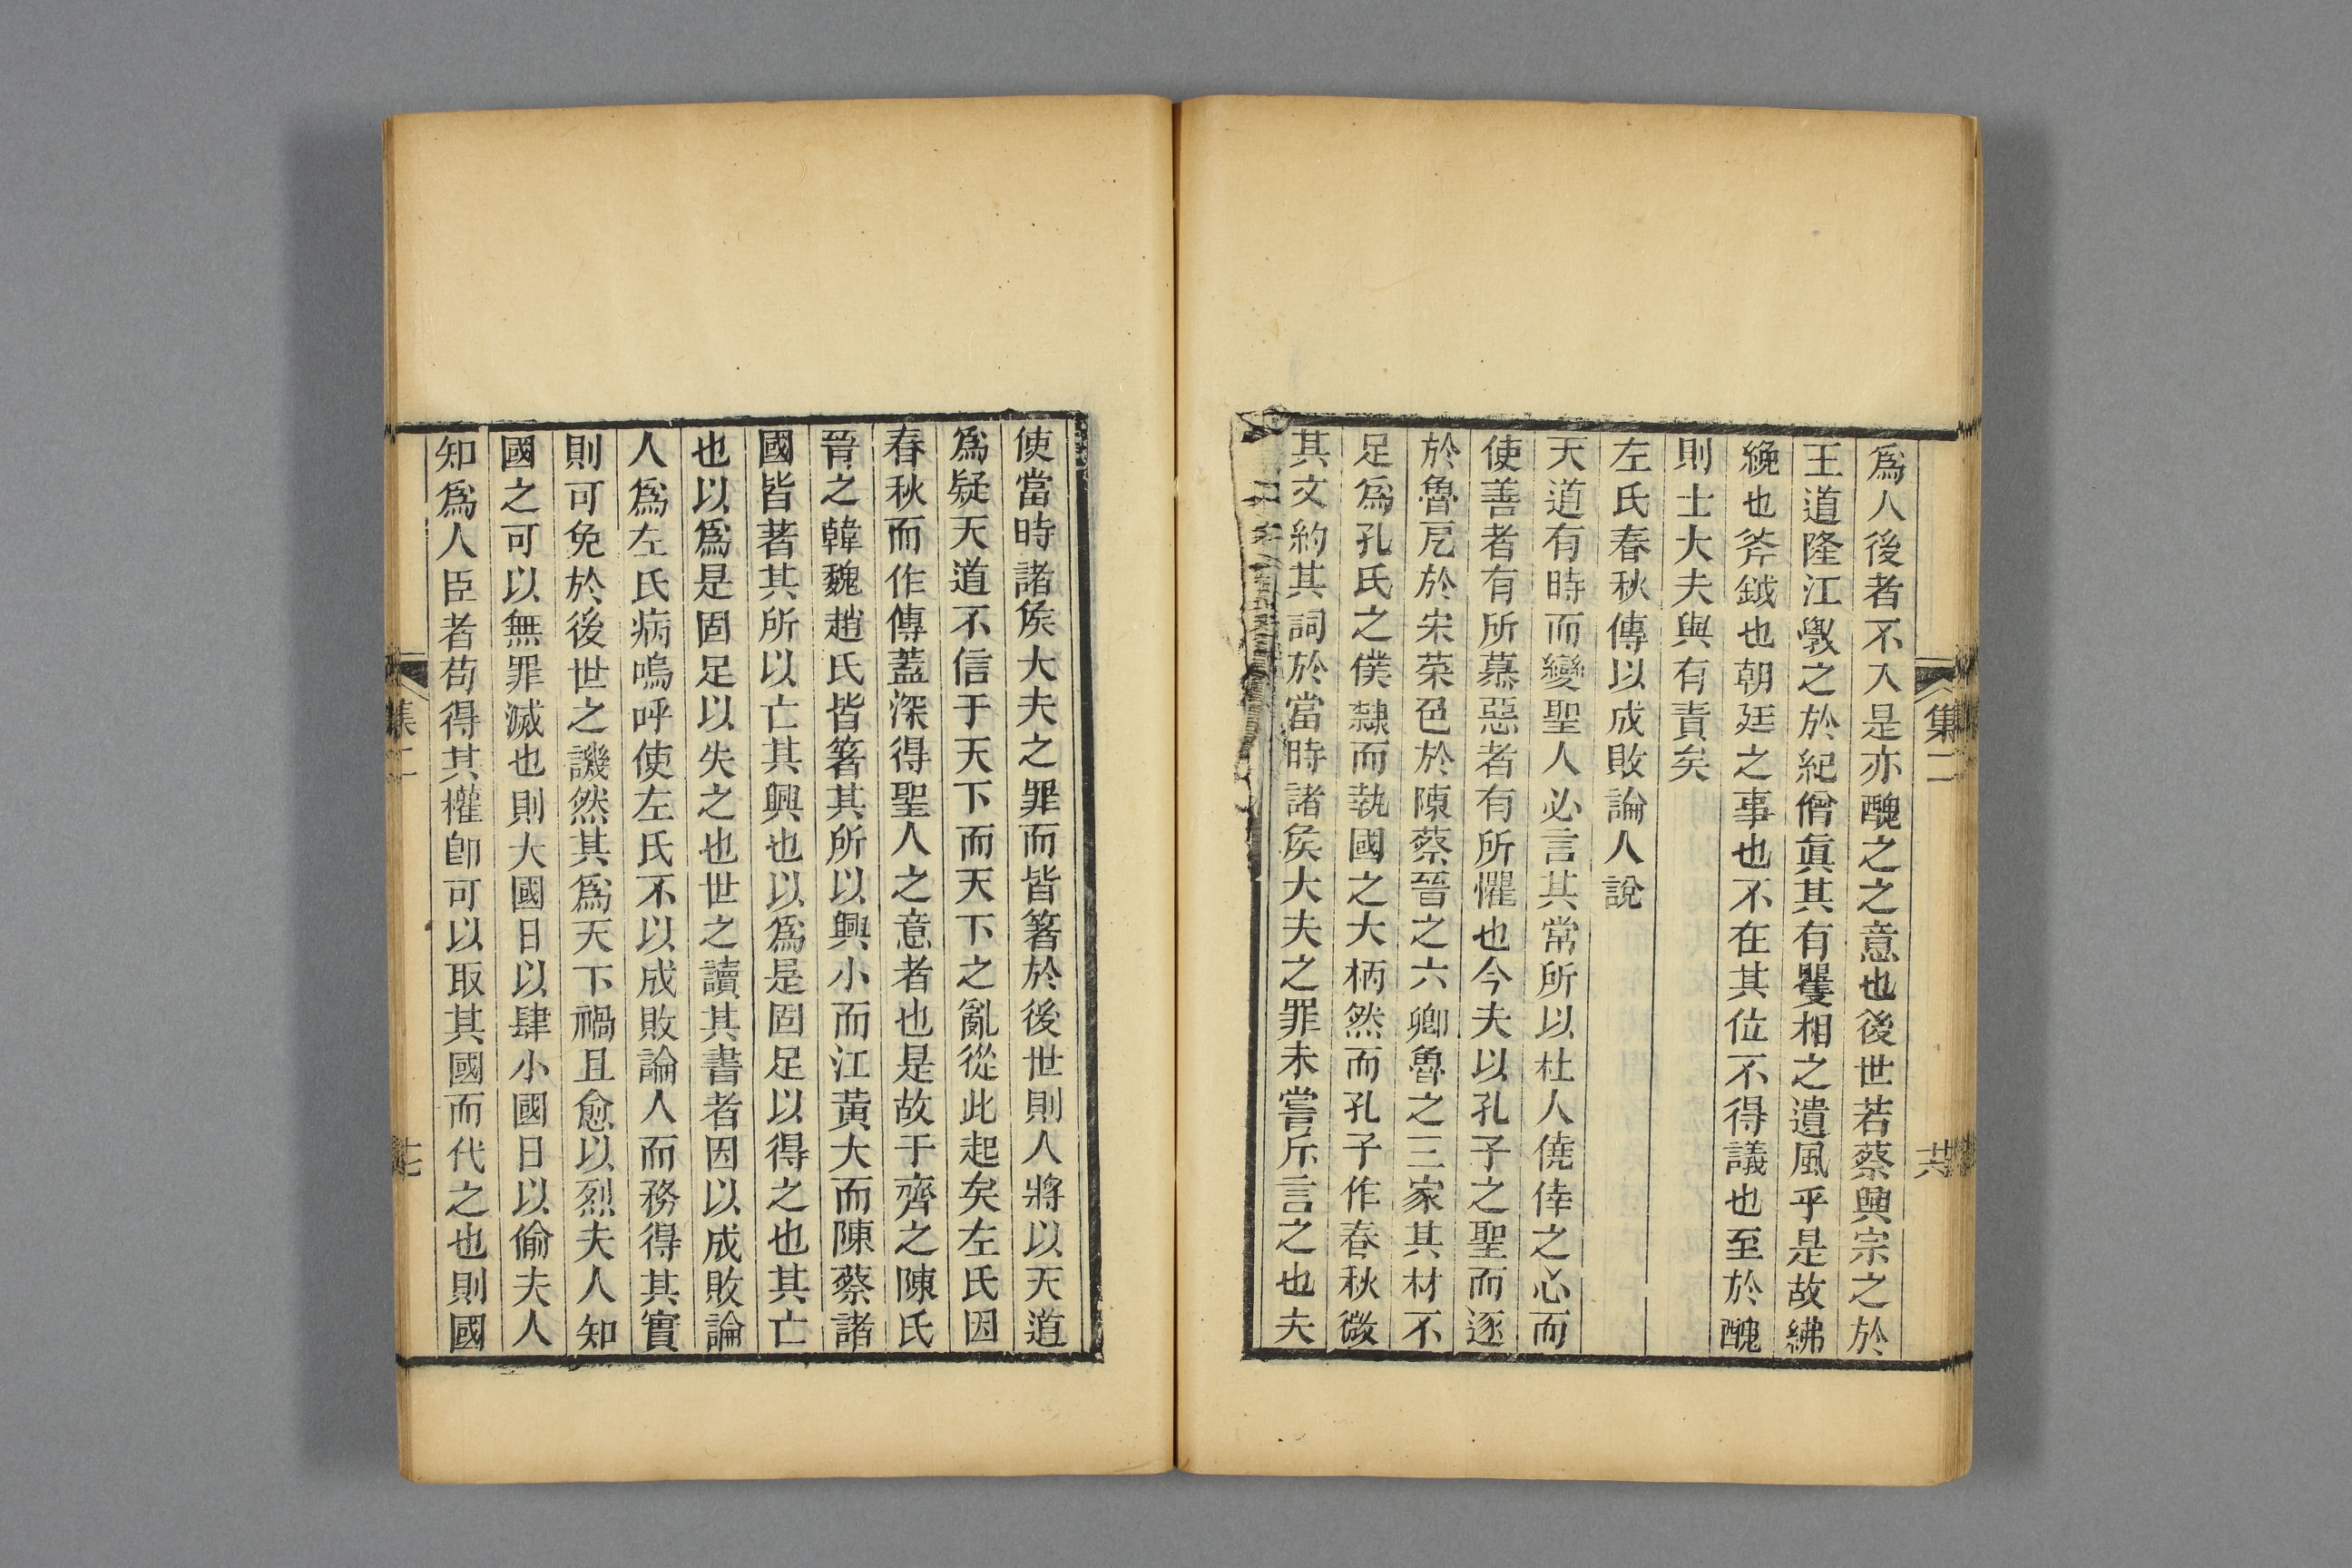 集二
共
爲人後者不入是亦醜之之意也後世若蔡興宗之於
王道隆江斆之於紀僧眞其有矍相之遺風乎是故紼
綩也斧鉞也朝廷之事也不在其位不得議也至於醜
則士大夫與有責矣
左氏春秋傳以成敗論人說
天道有時而變聖人必言其常所以杜人僥倖之心而
使善者有所慕惡者有所懼也今夫以孔子之聖而逐
於魯戹於宋萗邑於陳蔡晉之六卿魯之三家其材不
足爲孔氏之僕隸而執國之大柄然而孔子作春秋微
其文約其詞於當時諸矦大夫之罪未嘗斥言之也夫
使當時諸矦大夫之罪而皆箸於後世則人將以天道
爲疑天道不信于天下而天下之亂從此起矣左氏因
春秋而作傳蓋深得聖人之意者也是故于齊之陳氏
晉之韓魏趙氏皆箸其所以興小而江黃大而陳蔡諸
國皆著其所以亡其興也以爲是固足以得之也其亡
也以爲是固足以失之也世之讀其書者因以成敗論
人爲左氏病嗚呼使左氏不以成敗論人而務得其實
則可免於後世之譏然其爲天下禍且愈以烈夫人知
國之可以無罪滅也則大國日以肆小國日以偷夫人
知爲人臣者苟得其權卽可以取其國而代之也則國
集二